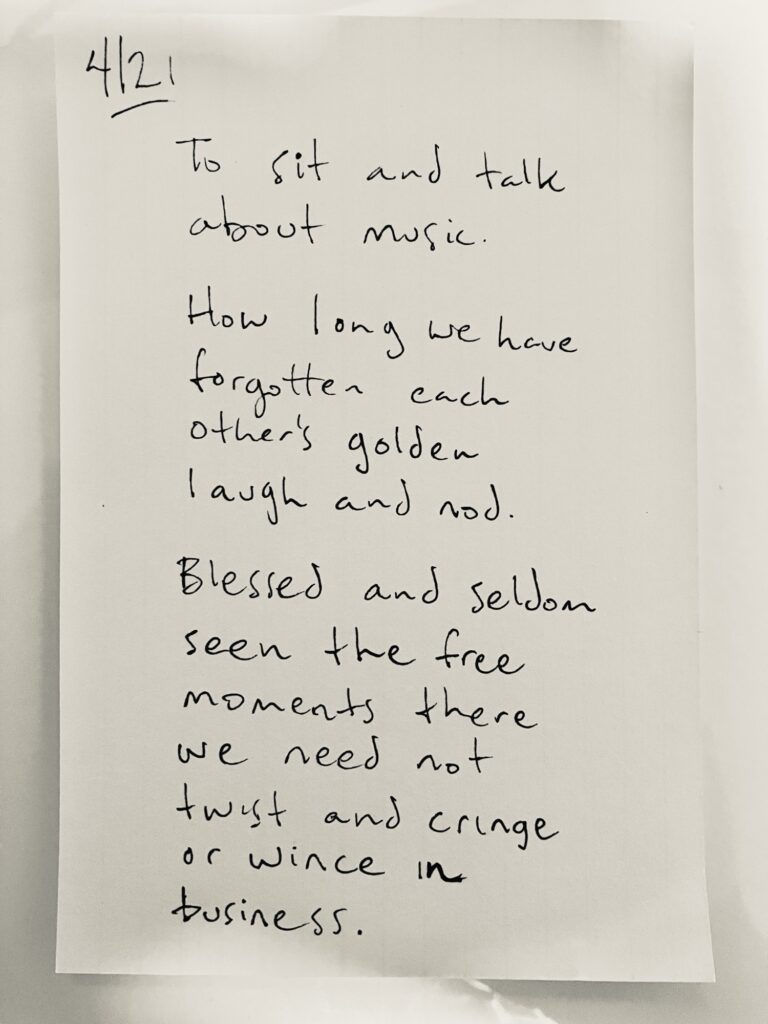 4/21
To sit and talk
about music.
How long we have
forgotten each
other's golden
laugh and nod.
Blessed and seldom
seen the free
moments there
we need not
twist and cringe
or wince in
business.